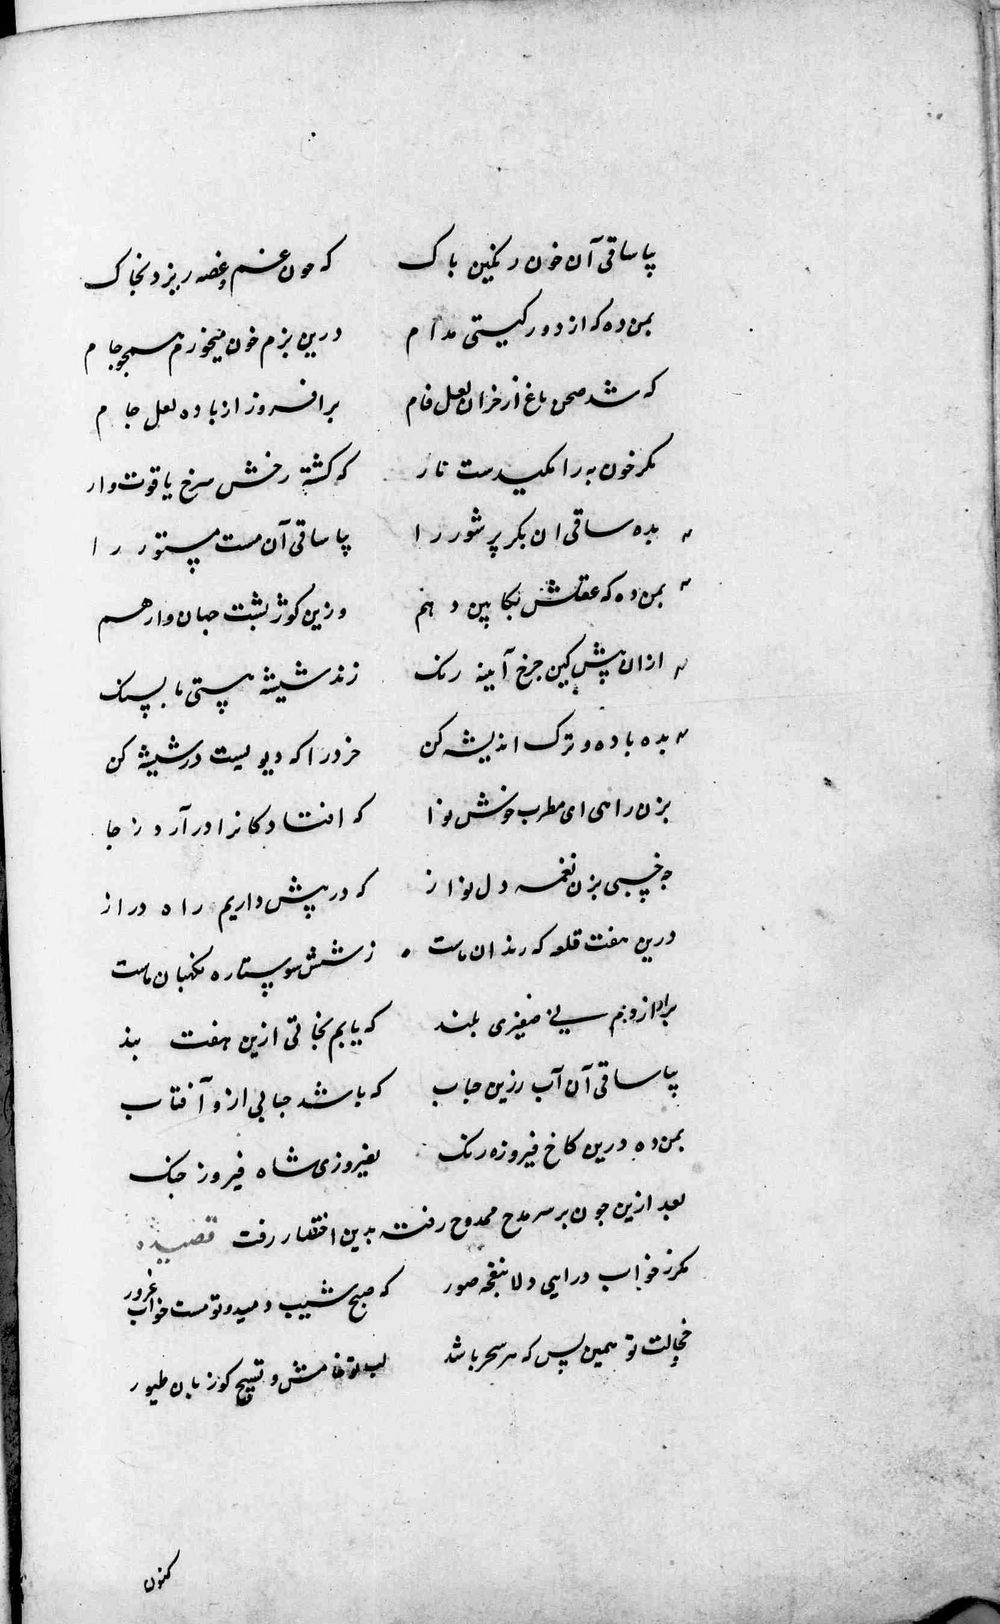 پیا ساقی آن خون رنگین باک که خون غم و غصه ریزد بخاک
بمن ده که از دور گیتی مدام درین بزم خون میخورم همچو جام
که شد صحن باغ از خزان لعل فام برافروز از باده لعل جام
مگر خون به را مکیدست نار که گشته رخش سرخ یاقوت وار
بده ساقی ان بکر پرشور را پیا ساقی آن مست مستور را
بمن ده که عقلش بکابین دهم وزین کوژپشت جهان وارهم
ازان پیش کین چرخ آینه رنک زند شیشه هستی ما بسنک
بده باده و ترک اندیشه کن خرد را که دیویست در شیشه کن
بزن راهی ای مطرب خوش نوا که افتادکانرا درآرد ز جا
چه خسبی بزن نغمه دل نواز که در پیش داریم راه دراز
درین هفت قلعه که زندان ماست ز شش سو ستاره نکهبان ماست
برار از دم نی صفیری بلند که یابم نجاتی ازین هفت بند
پیا ساقی آن آب زرین حباب که باشد حبابی ازو آفتاب
بمن ده درین کاخ فیروزه رنک بفیروزی شاه فیروز جنک
بعد ازین چون بر سر مدح ممدوح رفت بدین اختصار رفت قصیده
مکر ز خواب درایی دلا بنفخه صور که صبح شیب دمید و تو مست خواب غرور
خجالت تو همین بس که هر سحر باشد لب تو خامش و تسبیح کو زبان طیور
کنون